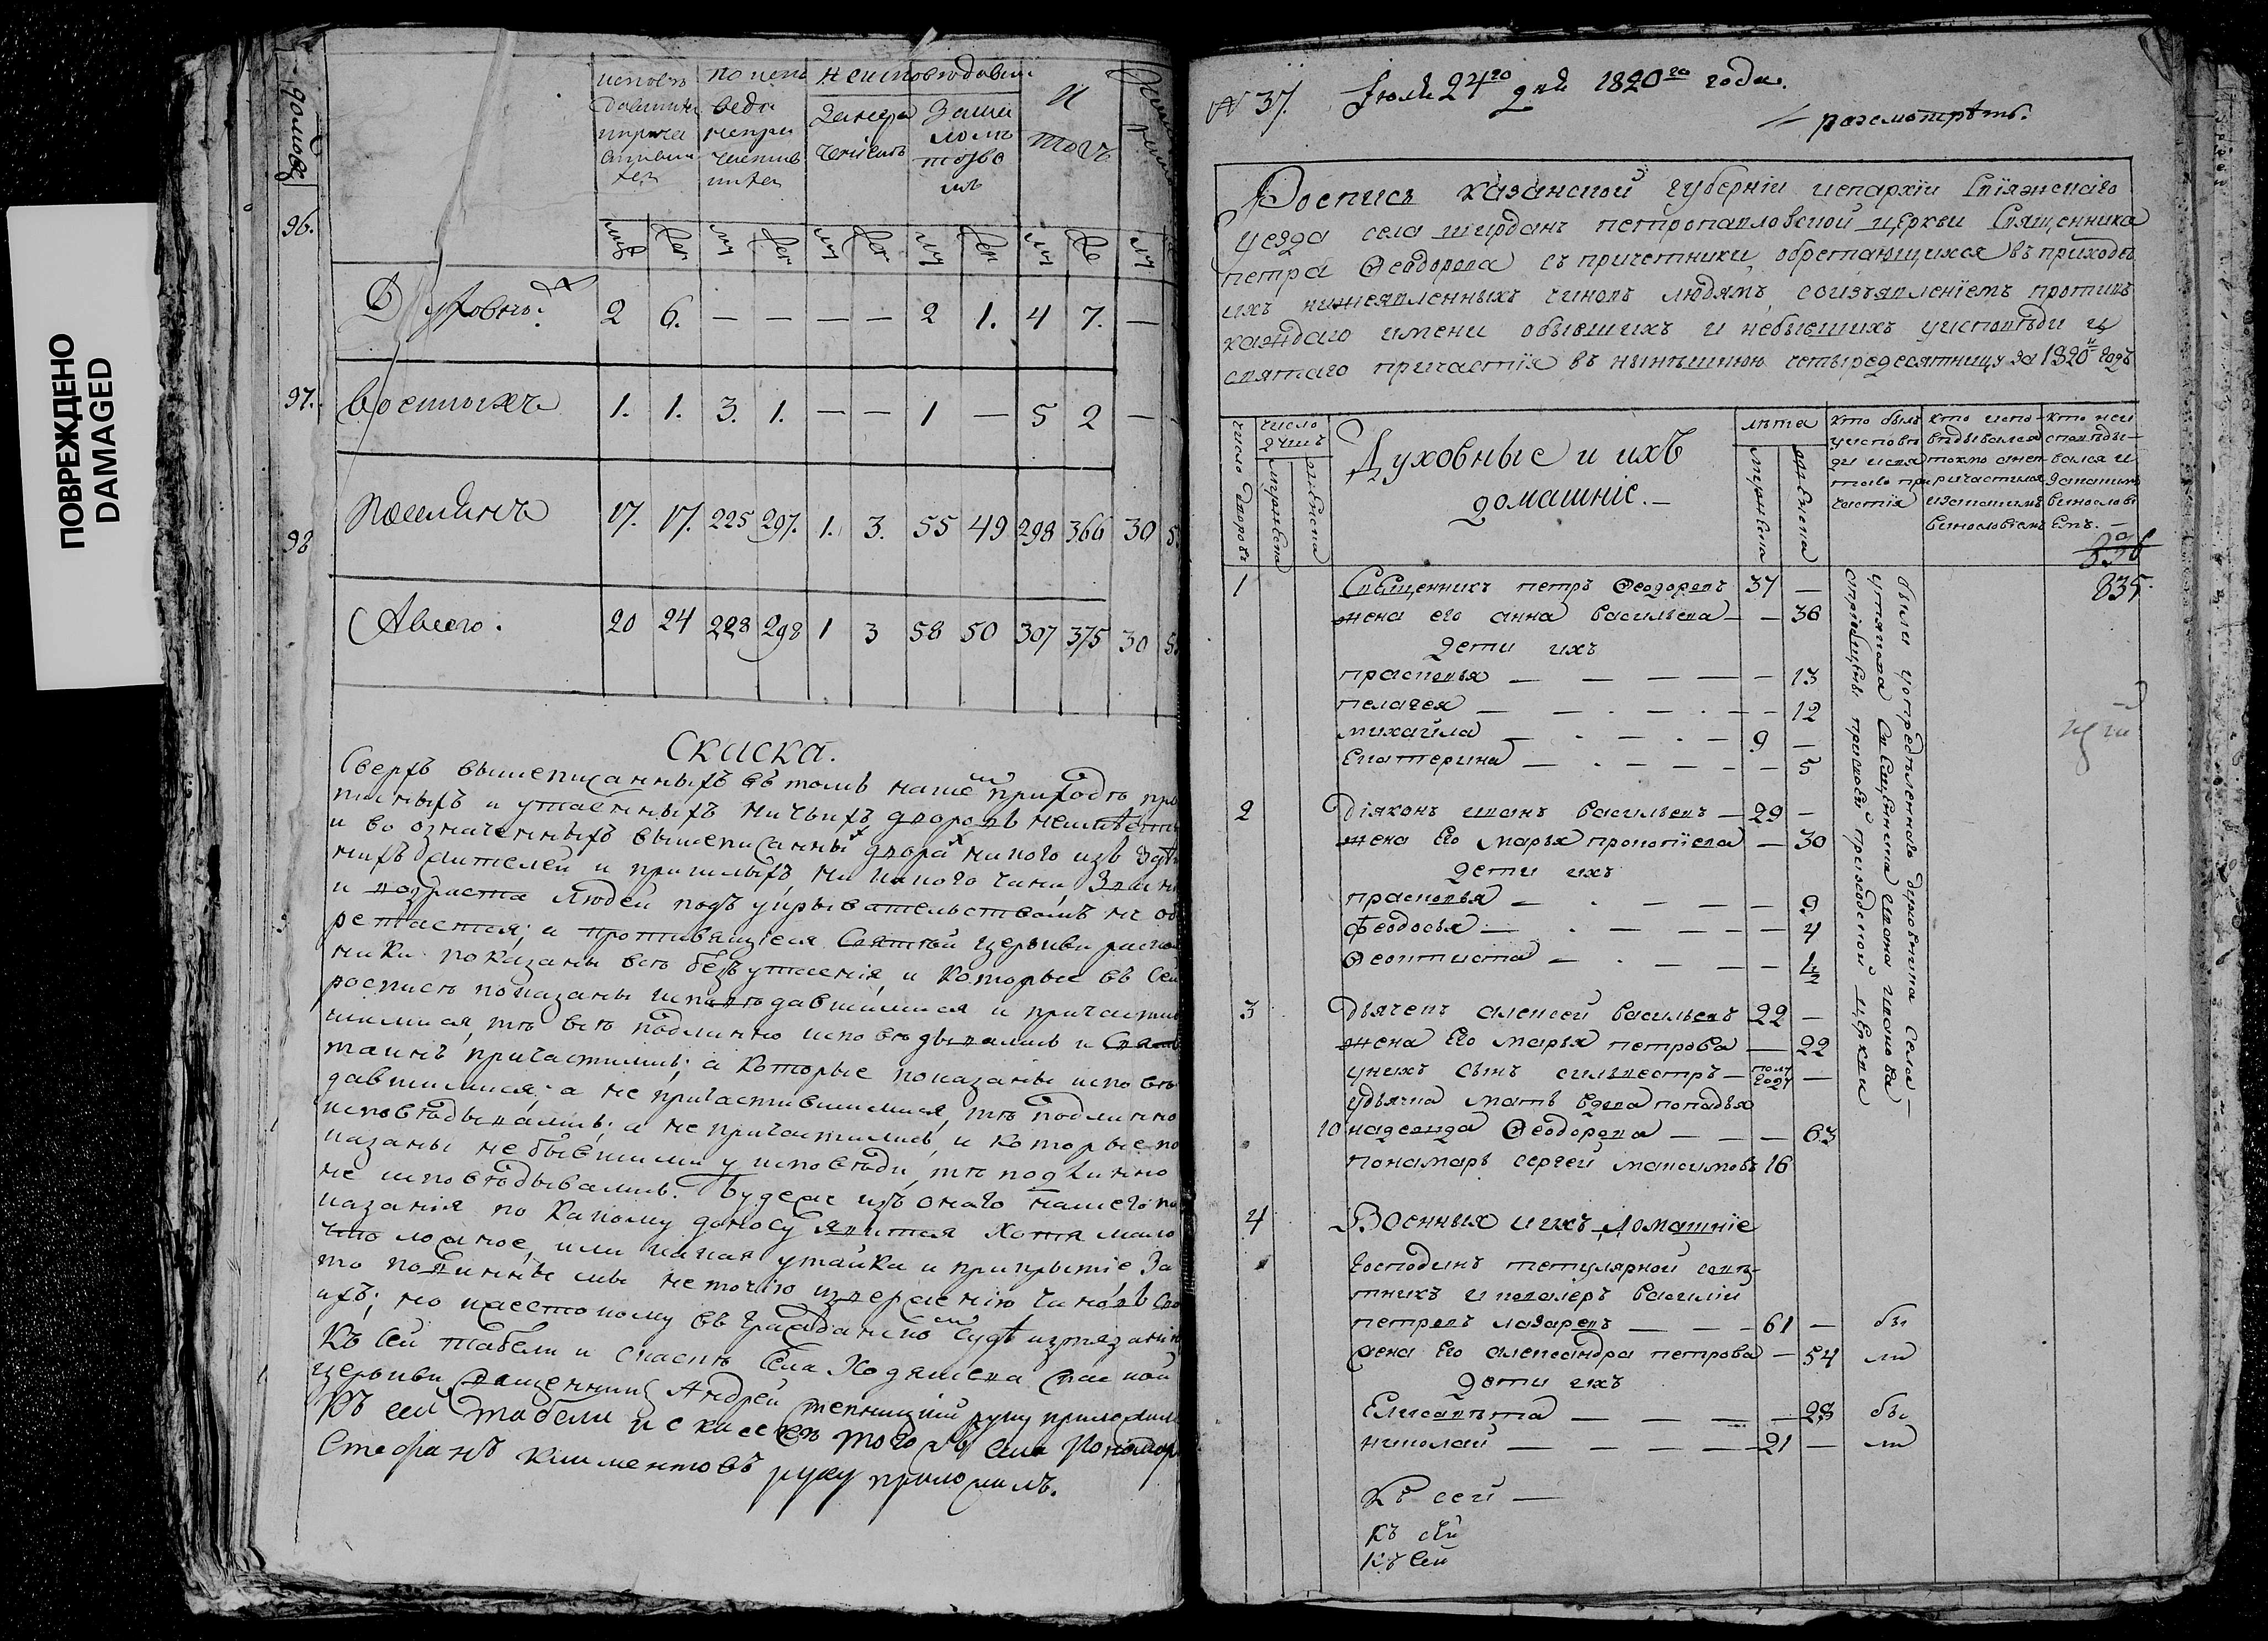 ПОВРЕЖДЕНО
DAMAGED
домовъ
96.
97.
98
испове
давшихся
и прича
стивших
ся
по испо
ведо
непри
частив
шихся
неисповедавши
за нера
чениемъ
за ма
ло мъ
тозво
мъ
и
тогъ
Духовныхъ 2 6. — — — — 2 1. 4 7. —
Военныхъ 1. 1. 3. 1. — — 1 — 5 2 —
Поселянъ 17. 17. 225 297. 1. 3. 55 49 298 366 30
А всего: 20 24 228 298 1 3 58 50 307 375 30
Скиска.
Сверхъ вышеписанныхъ въ томъ нашемъ приходъ про
писныхъ и утаенныхъ ничьихъ дворовъ неимъется
и во означенныхъ вышеписанныхъ дворахъ никого изъ
жителей и пришлыхъ никакого чина, звания
и возраста людей подъ укрывательствомъ не об
ретается; и противящиеся Святой церькви раскол
ники показаны всъ безъ утаенія, и которые въ сей
росписъ показаны исповъдавшимися и причастив
шимися, тъ всъ подлинно исповъдывались и Святыхъ
таинъ причастились; а которые показаны исповъ
давшимися, а не причастившимися, тъ подлинно
исповъдывались; а не причастились, и которые по
казаны не бывшими у исповъди, тъ подлинно
не исповъдывались. Буде же изъ онаго нашего по
казанія по какому доносу явится хотя мало
что ложное, или какая утайка и прикрытіе за
то повинны мы не точію извержению чиновъ сво
ихъ; но и жестокому въ гражданскомъ судъ изтязанію
Къ сей табели и скаскъ Села Ходяшева Спаской
церькви священникъ Андрей руку приложилъ
Къ сей табели и скаскъ того жъ села Пономарь
Стефанъ Климентовъ руку приложилъ.
№ 37. Июля 24го дня 1820го года.
разсмотрѣть.
Роспись казанской губерніи иепархіи Свіяжскаго
уезда села ширданъ петропавловской церкви Священника
петра Ѳеодорова съ причетники обретающихся въ приходъ
ихъ нижеявленныхъ чиновъ людямъ соизъявленіемъ противъ
каждаго имени обывшихъ и небывшихъ уисповѣди и
святаго причастія въ нынѣшнюю четыредесятницу за 1820й годъ
число дворовъ
число душъ
мужеска
женска
Духовные и ихъ
домашніе.—
лѣта
мужеска
женска
кто былъ
уисповѣ
ди исвя
таго при
частія
кто испо-
вѣдывался
токмо анеп
ричастился
изакакимъ
винословіемъ
кто неи
споведы-
вался и
закакимъ
винослові
емъ. —
835.
1 Священникъ петръ Ѳеодоровъ 37 —
жена его анна васильева — — 36
дети ихъ
прасковья — — — — — 13
пелагея — — — — — 12
михайла — — — — 9 —
Екатерина — — — — — 5
были уопредѣленнаго духовника Села —
утякова Священника ивана иванова
2 Діяконъ иванъ васильевъ — 29 —
жена его марья прокопіева — 30
дети ихъ
прасковья — — — — — 9
феодосья — — — — — 4
Ѳеоктиста — — — — — 1/2
3 Дьячекъ алексей васильевъ 22 —
жена Его марья петрова — 22
унихъ сынъ сильвестръ — полу году —
удьячка мать вдова попадья
10 надежда Ѳеодорова — — — 63
понамарь сергей максимовъ 16
4 Военныя иихъ домашніе
Господинъ тетулярной совѣ-
тникъ икавалеръ василий
петровъ лазаревъ — — — 61 — бы
жена его александра петрова — 54 ли
дети ихъ
Елисавета — — — — 28 бы
николай — — — — 21 — ли
Къ сей —
Къ сей
Къ сей